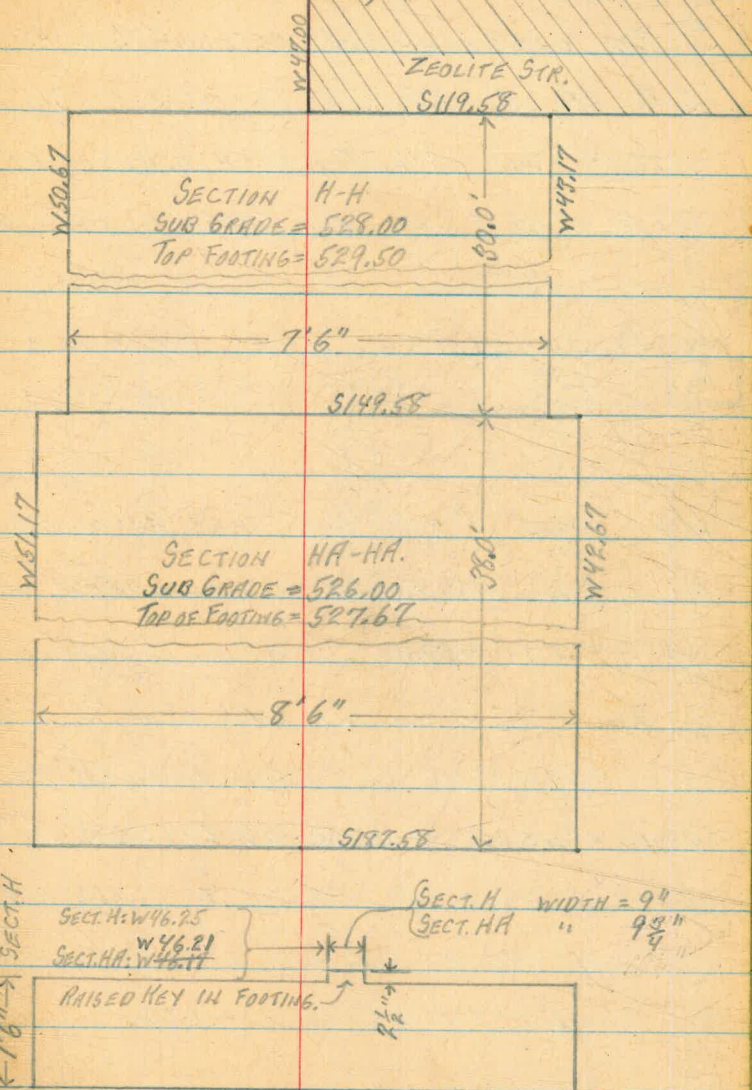 W47.00
ZEOLITE STR.
S119.58
W50.67
SECTION H-H
SUB GRADE = 528.00
TOP FOOTING = 529.50
30.0'
W43.17
7'6"
S149.58
W51.17
SECTION HA-HA.
SUB GRADE = 526.00
TOP OF FOOTING = 527.67
38.0'
W42.67
8'6"
S187.58
SECT. H: W46.25
W46.21
SECT. HA: W46.17
SECT. H WIDTH = 9"
SECT. HA " 9 3/4"
RAISED KEY IN FOOTING.
2 1/2"
1'6" SECT. H